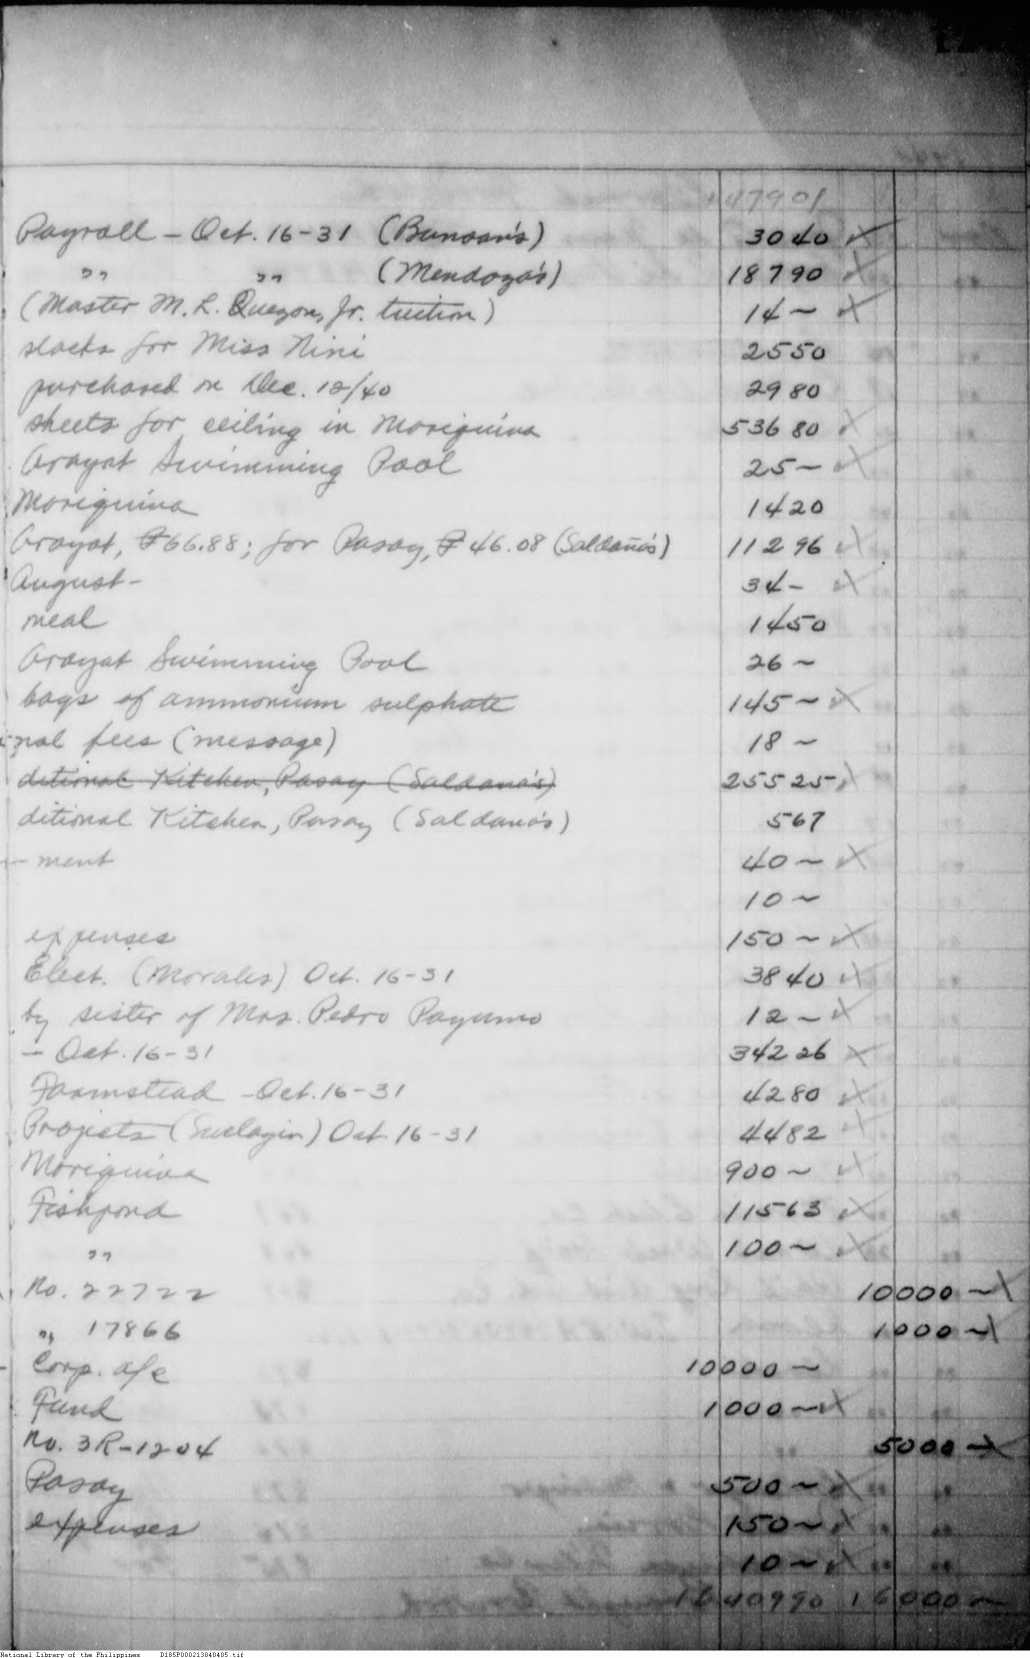 1 479 01
Payroll - Oct. 16-31 (Bunoan's) 30 40
" " (Mendoza's) 187 90
(Master M. L. Quezon, Jr. tuition) 14 ~
slacks for Miss Nini 25 50
purchased on Dec. 12/40 29 80
sheets for ceiling in Mariquina 536 80
Arayat Swimming Pool 25 ~
Mariquina 14 20
Arayat, ₱66.88; for Pasay, ₱46.08 (Saldaña's) 112 96
August - 34 -
meal 14 50
Arayat Swimming Pool 26 ~
bags of ammonium sulphate 145 ~
nal fees (message) 18 ~
ditional Kitchen, Pasay (Saldana's) 255 25
ditional Kitchen, Pasay (Saldana's) 5 67
- ment 40 ~
10 ~
expenses 150 ~
Elect. (Morales) Oct. 16-31 38 40
by sister of Mrs. Pedro Payumo 12 ~
- Oct. 16-31 342 26
Farmstead - Oct. 16-31 42 80
Projects (Suclayin) Oct 16-31 44 82
Mariquina 900 ~
Fishpond 115 63
" 100 ~
No. 22722 10000 ~
" 17866 1000 ~
Corp. a/c 10000 ~
Fund 1000 ~
No. 3R-1204 5000 ~
Pasay 500 ~
expenses 150 ~
10 ~
16 409 90 16000 ~
National Library of the Philippines D185P000213040405.tif